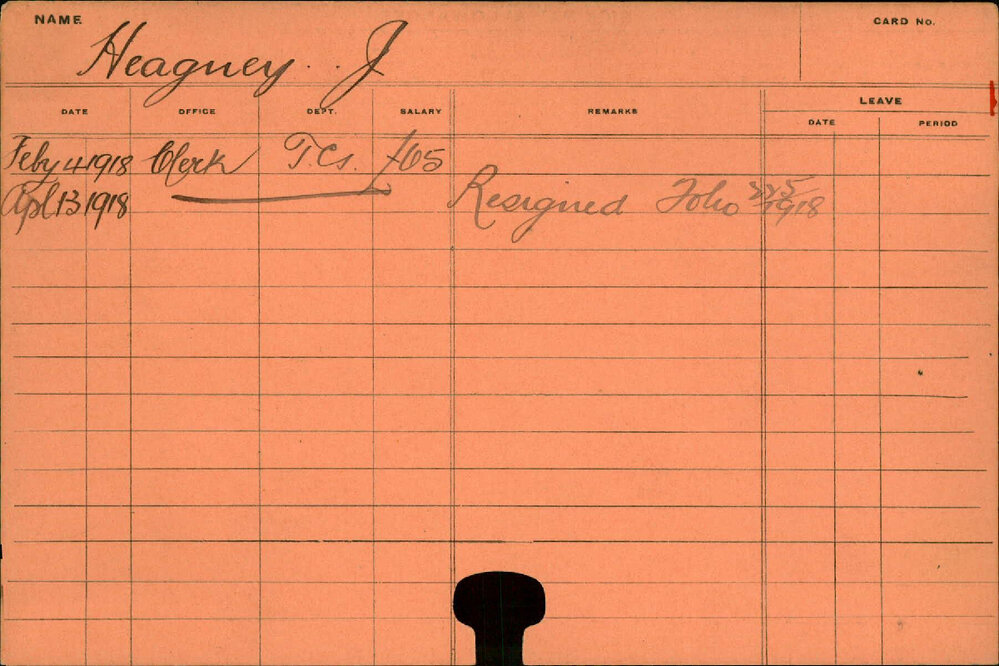 NAME
CARD No.
Heagney. J
DATE OFFICE DEPT. SALARY REMARKS LEAVE
DATE PERIOD
Feby 4 1918 Clerk T.Cs. £65
Apl 13 1918 Resigned Folio 225/1918